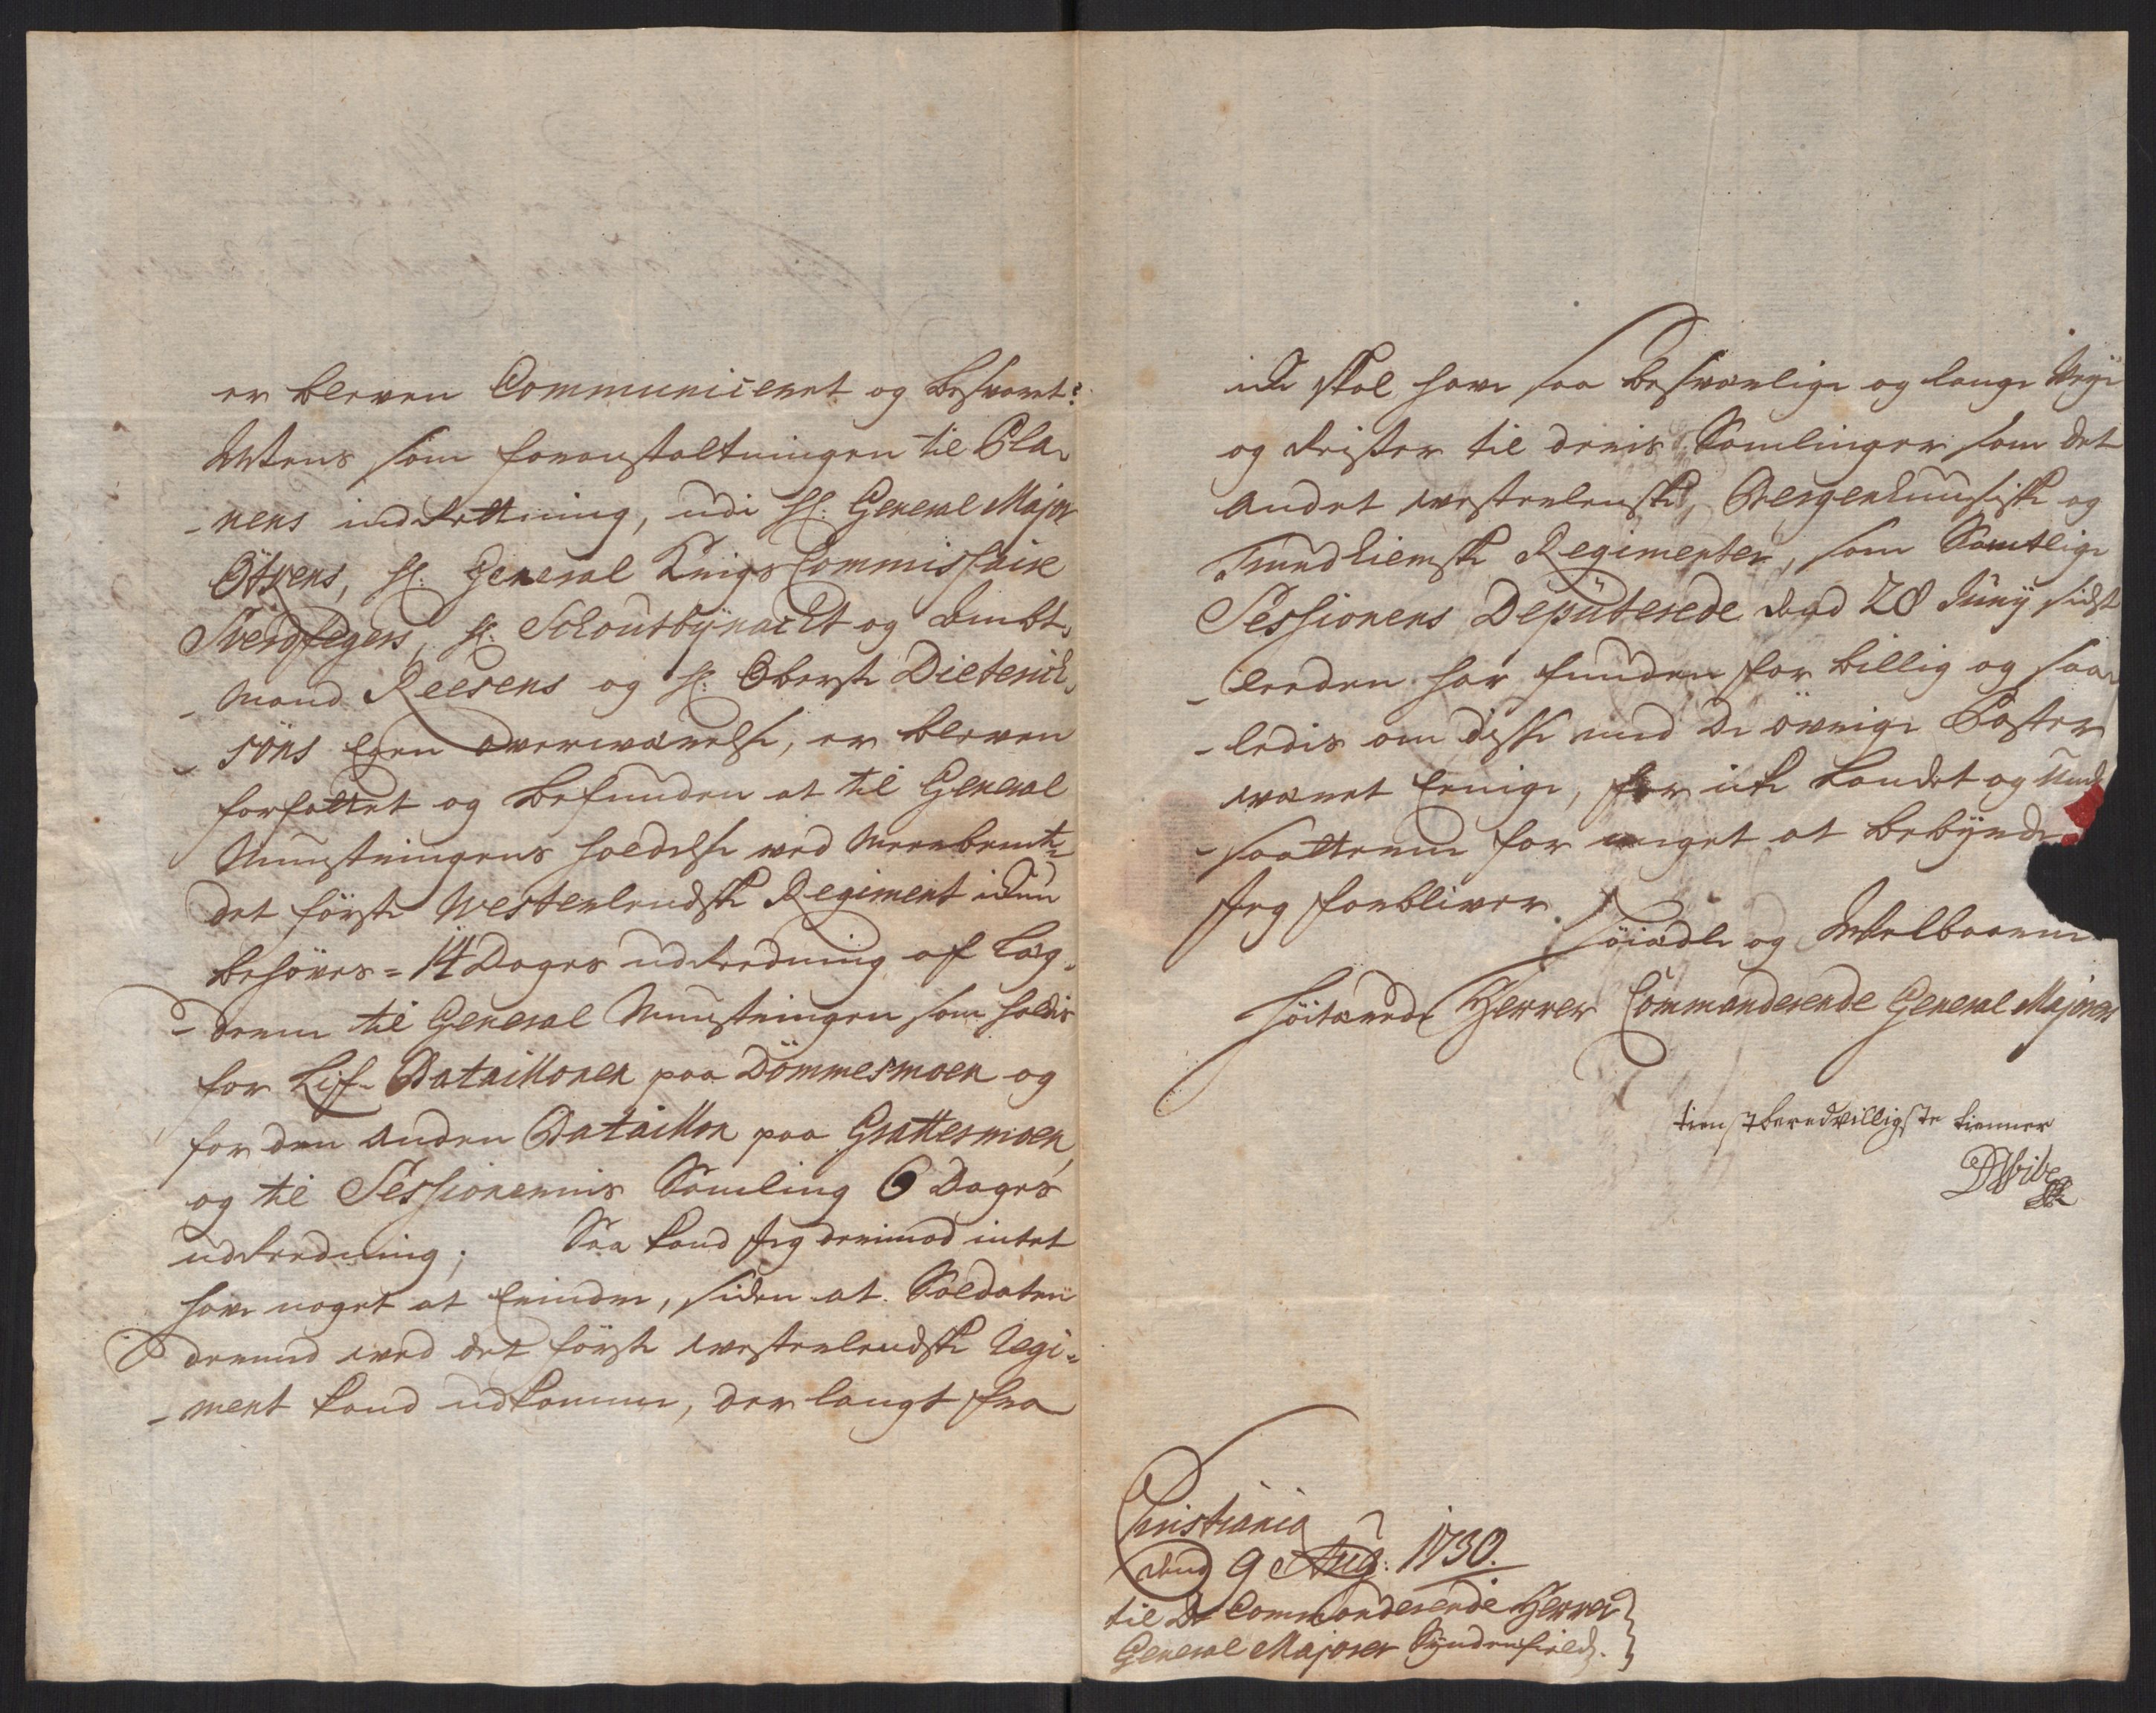 er bleven Communiceret og besvaret:
Mens som foranstaltningen til Pla-
-nens indrettning, udi H: General Major
Ötkens, H: General Krigs Commissaire
Sverdfegers, H: Schoutbÿnacht og Ambt-
-mand Reesens og H: Oberste Dieterich-
-söns Egen overværelse, er bleven
forfattet og befunden at til General
Mynstringens holdelse ved Meerbemte
det förste Westerlendske Regiment ickun
behöves = 14 Dages udreedning af Læg-
-derne til General Mynstringen som holdes
for Liff-Bataillonen paa Dömmesmoen og
for den anden Bataillon paa Grattesmoen,
og til Sessionernis Samling 6 Dages
udreedning; Saa kand Jeg derimod intet
have noget at Erindre, siden at Soldaten
dermed ved det förste westerlendske Regi-
-ment kand udkomme, der langt fra
icke skal have saa besværlige og lange Veÿe
og Reiser til deris Samlinger som det
andet westerlenske, Bergenhuusiske og
Trundhiemske Regimenter, som Samtlige
Sessionens Deputerede dend 28 Junÿ sidst-
-leeden har funden for billig og saa-
-ledis om disse med de övrige Poster
været Eenige, for icke Landet og Und-
-saatterne for meget at bebyrde
Jeg forbliver.
Höiædle og Welbaarne
Höitærede Herrer Commanderende General Majorers
tienstberedvilligste tienner
DWibe
Christiania
dend 9 Aug: 1730.
til De Commanderende Herrer
General Majorer Synden fields.